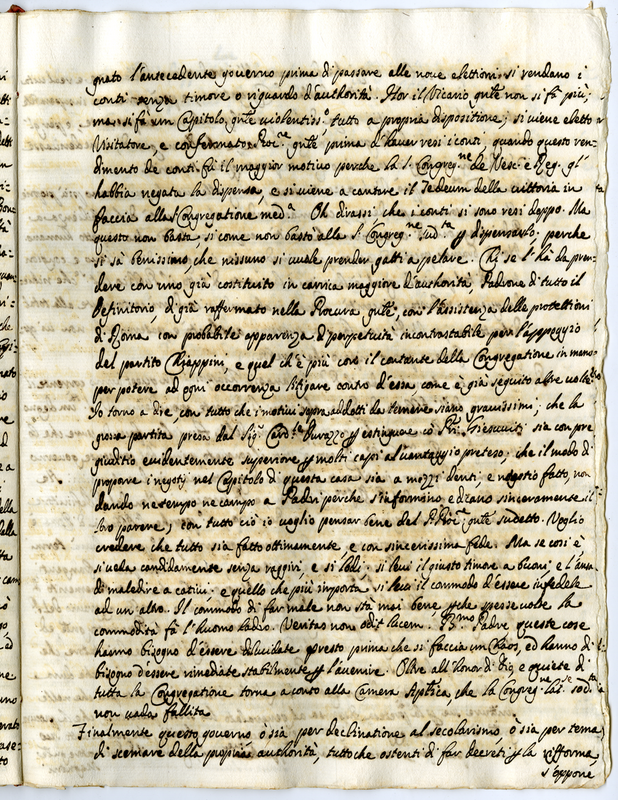 gnato l'antecedente governo prima di passare alle nove elettioni si rendano i
conti senza timore o riguardo d'authorità. Hor il Vicario gñle non si fà più;
ma si fà un Capitolo gñle violentiss.º tutto a propria dispositione; si viene eletto
Visitatore, e confermator Proc.re gñle prima d'haver resi i conti, quando questo ren-
dimento de conti fù il maggior motivo perche la S. Congreg.ne de Vesc. e Reg. gl'
habbia negata la dispensa, e si viene a cantare il Tedeum della vittoria in
faccia alla Congregatione med.a Oh dirassi, che i conti si sono resi dappo. Ma
questo non basta, si come non bastò alla S. Congreg.ne sud.ta p dispensarlo, perche
si sà benissimo, che nissuno si vuole prender gatti a pelare. Chi se l'hà da pren-
dere con uno già costituito in carrica maggiore d'authorità, Padrone di tutto il
Definitorio, di già raffermato nella Procura gñle, con l'assistenza delle protettioni
di Roma con probabile apparenza di perpetuità incontrastabile per l'appoggio
del partito Chiappini, e quel ch'è più con il contante della Congregatione in mano
per potere ad ogni occorrenza litigare contro d'essa come è già seguito altre volte
Io torno a dire, con tutto che i motivi sopra addotti da temere siano gravissimi; che la
grossa partita presa dal Sig.r Card.le Durazzo p estinguere cõ PP. Giesuviti sia con pre
giuditio evidentemente superiore p molti capi al vantaggio preteso, che il modo di
proporre i negotij nel Capitolo di questa casa sia a mezzi denti e negotio fatto, non
dando ne tempo ne campo a Padri perche s'informino e dicano sinceramente il
loro parere; con tutto ciò io voglio pensar bene del P. Proc.re gñle sudetto. Voglio
credere che tutto sia fatto ottimamente, e con sincerissima fede. Ma se così è
si veda candidamente senza raggiri, e si lodi. si levi il giusto timore a buoni e l'ansa
di maledire a cativi. e quello che più importa, si levi il commodo d'essere infedele
ad un altro. Il commodo di far male non stà mai bene pche spesse volte la
commodità fà l'huomo ladro. Veritas non odit lucem. R.mo Padre queste cose
hanno bisogno d'essere dilucidate presto prima che si faccia un Chaos, ed hanno di
bisogno d'essere rimediate stabilmente p l'avenire. Oltre all'honor di Dio, e quiete di
tutta la Congregatione torna a conto alla Camera Aplica, che la Congreg.ne sod.ta
non vada fallita
Finalmente questo governo ò sia per declinatione al secolarismo, ò sia per tema
di scemare della propria authorità, tutto che ostenti di far decreti p la rifforma,
s'oppone